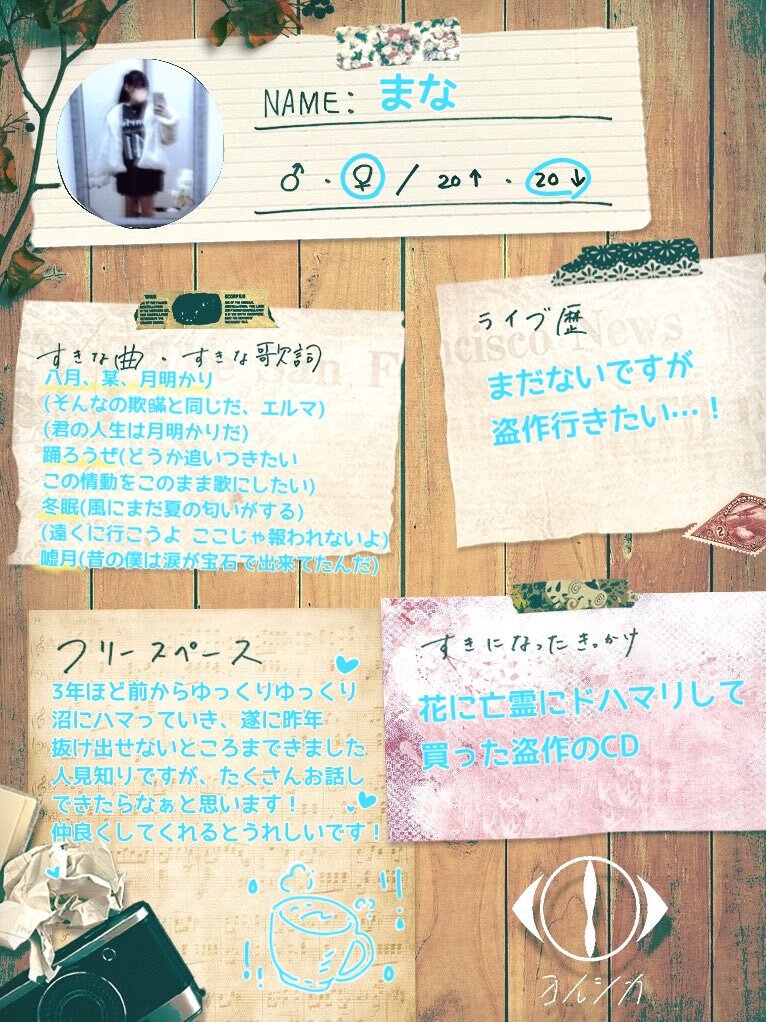 NAME: まな
♂・♀ / 20↑・20↓
すきな曲・すきな歌詞
八月、某、月明かり
(そんなの欺瞞と同じだ、エルマ)
(君の人生は月明かりだ)
踊ろうぜ(どうか追いつきたい
この情動をこのまま歌にしたい)
冬眠(風にまだ夏の匂いがする)
(遠くに行こうよ ここじゃ報われないよ)
嘘月(昔の僕は涙が宝石で出来てたんだ)
ライブ歴
まだないですが
盗作行きたい…！
フリースペース
3年ほど前からゆっくりゆっくり
沼にハマっていき、遂に昨年
抜け出せないところまできました
人見知りですが、たくさんお話し
できたらなぁと思います！
仲良くしてくれるとうれしいです！
すきになったきっかけ
花に亡霊にドハマリして
買った盗作のCD
ヨルシカ